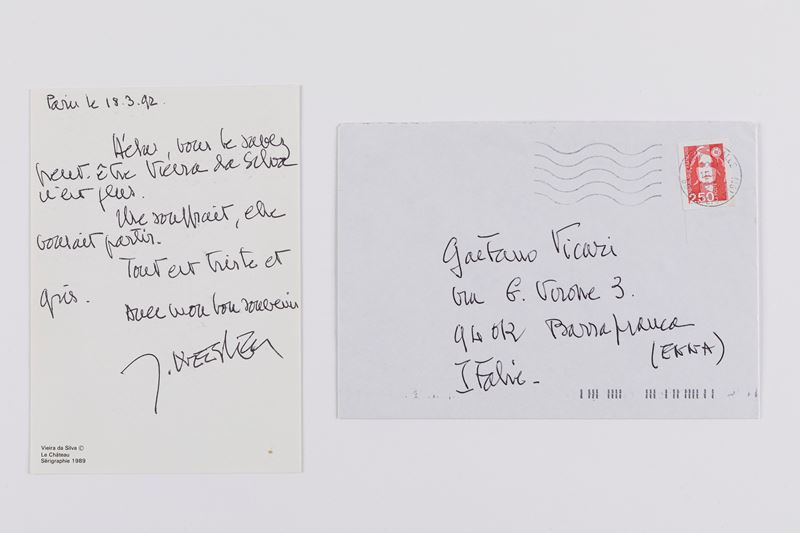 Paris le 18.3.92.
Hélas, vous le savez
peut-être Vieira da Silva
n'est plus.
Elle souffrait, elle
voulait partir.
Tout est triste et
gris.
Avec mon bon souvenir
Vieira da Silva ©
Le Château
Sérigraphie 1989
2,50
Gaetano Vicari
via G. Verone 3.
94012 Barrafranca
(ENNA)
Italie.